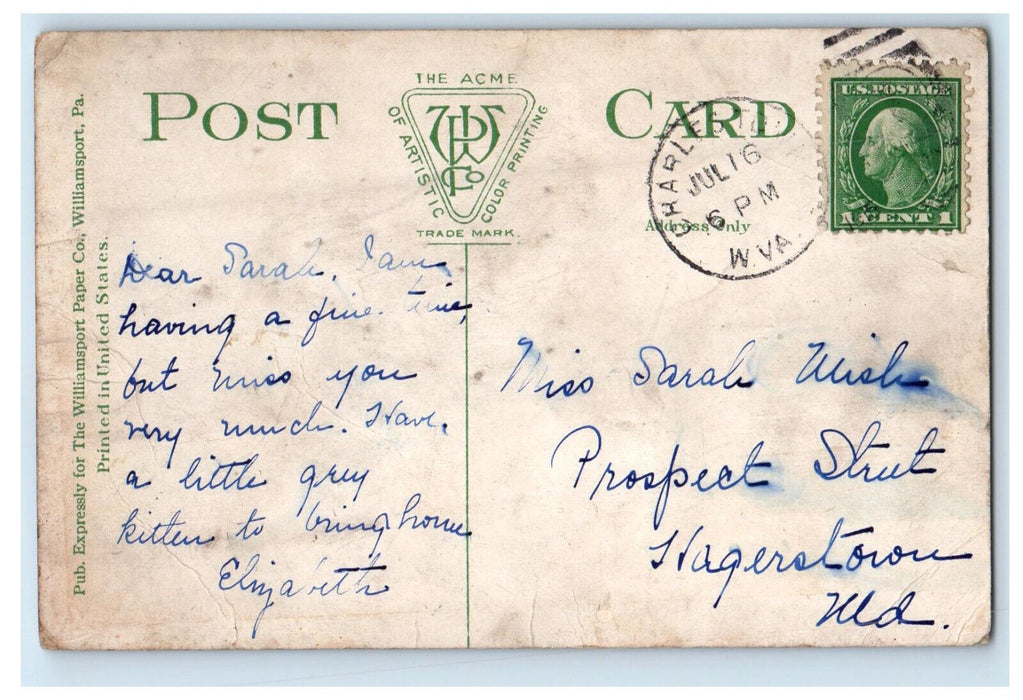 POST CARD
THE ACME
OF ARTISTIC
COLOR PRINTING
WPCo
TRADE MARK.
Address Only
CHARLES
JUL 16
6 PM
W.VA.
U.S. POSTAGE
1 CENT 1
Pub. Expressly for The Williamsport Paper Co., Williamsport, Pa.
Printed in United States.
Dear Sarah, I am
having a fine time,
but miss you
very much. Have
a little grey
kitten to bring home
Elizabeth
Miss Sarah
Prospect Street
Hagerstown
Md.